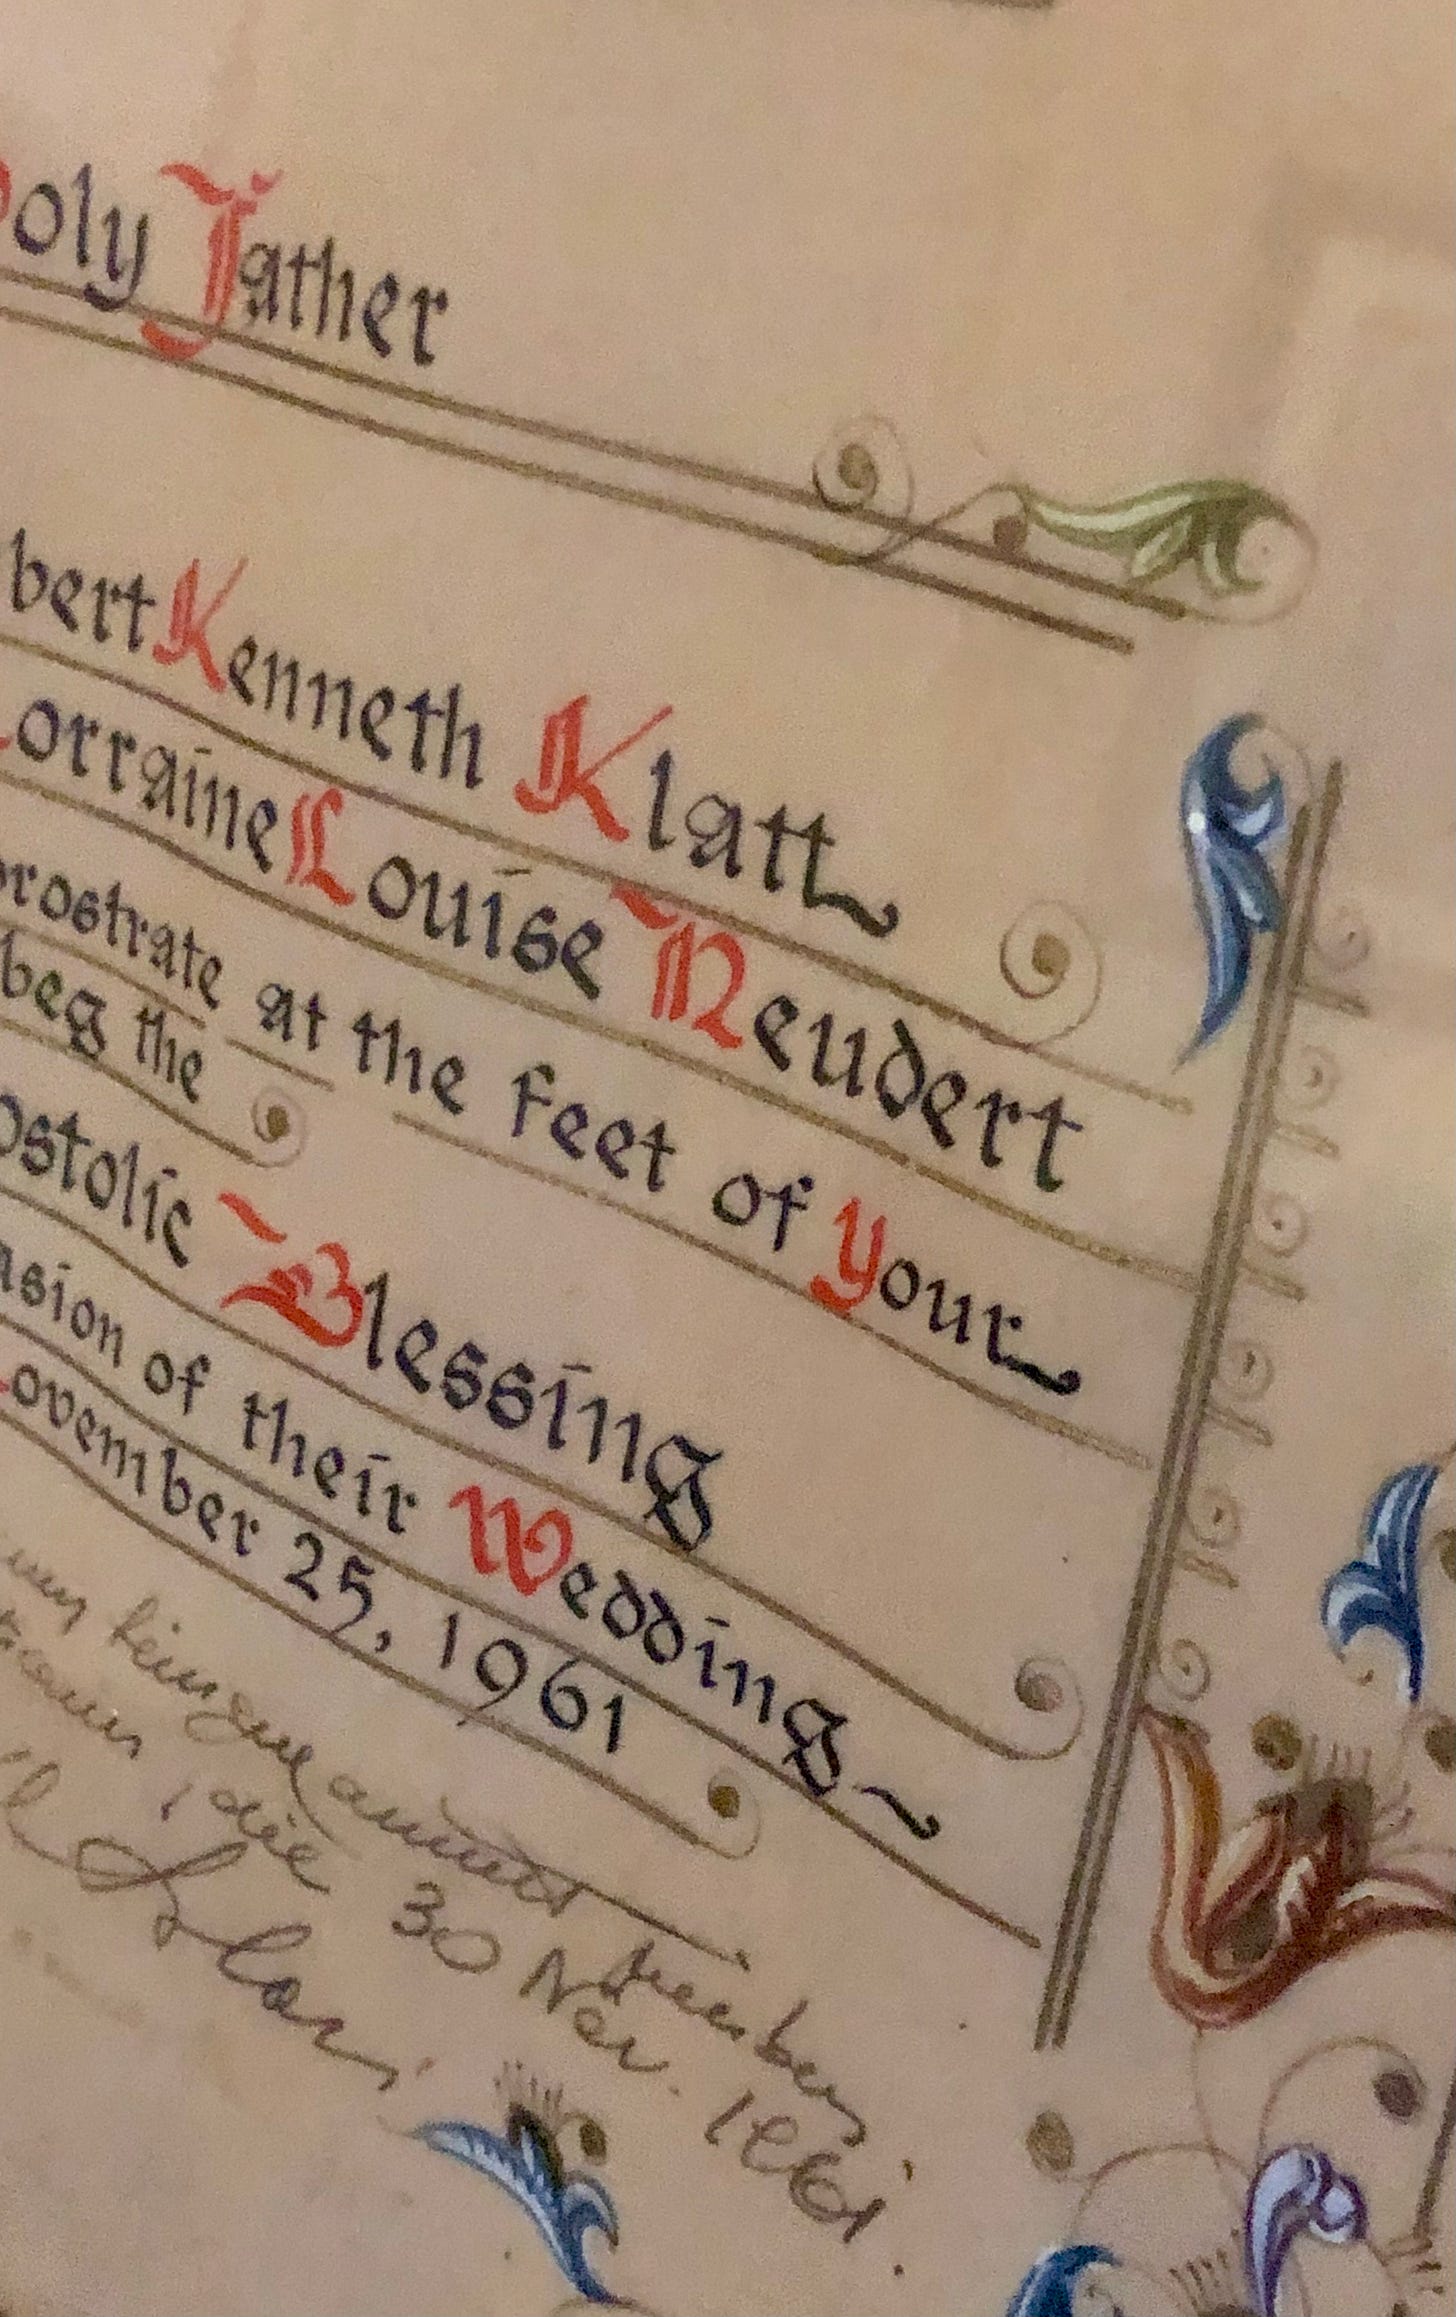 oly Father
bert Kenneth Klatt
Lorraine Louise Neudert
prostrate at the feet of Your
beg the
ostolic Blessing
asion of their Wedding
November 25, 1961
30 Nov. 1961.